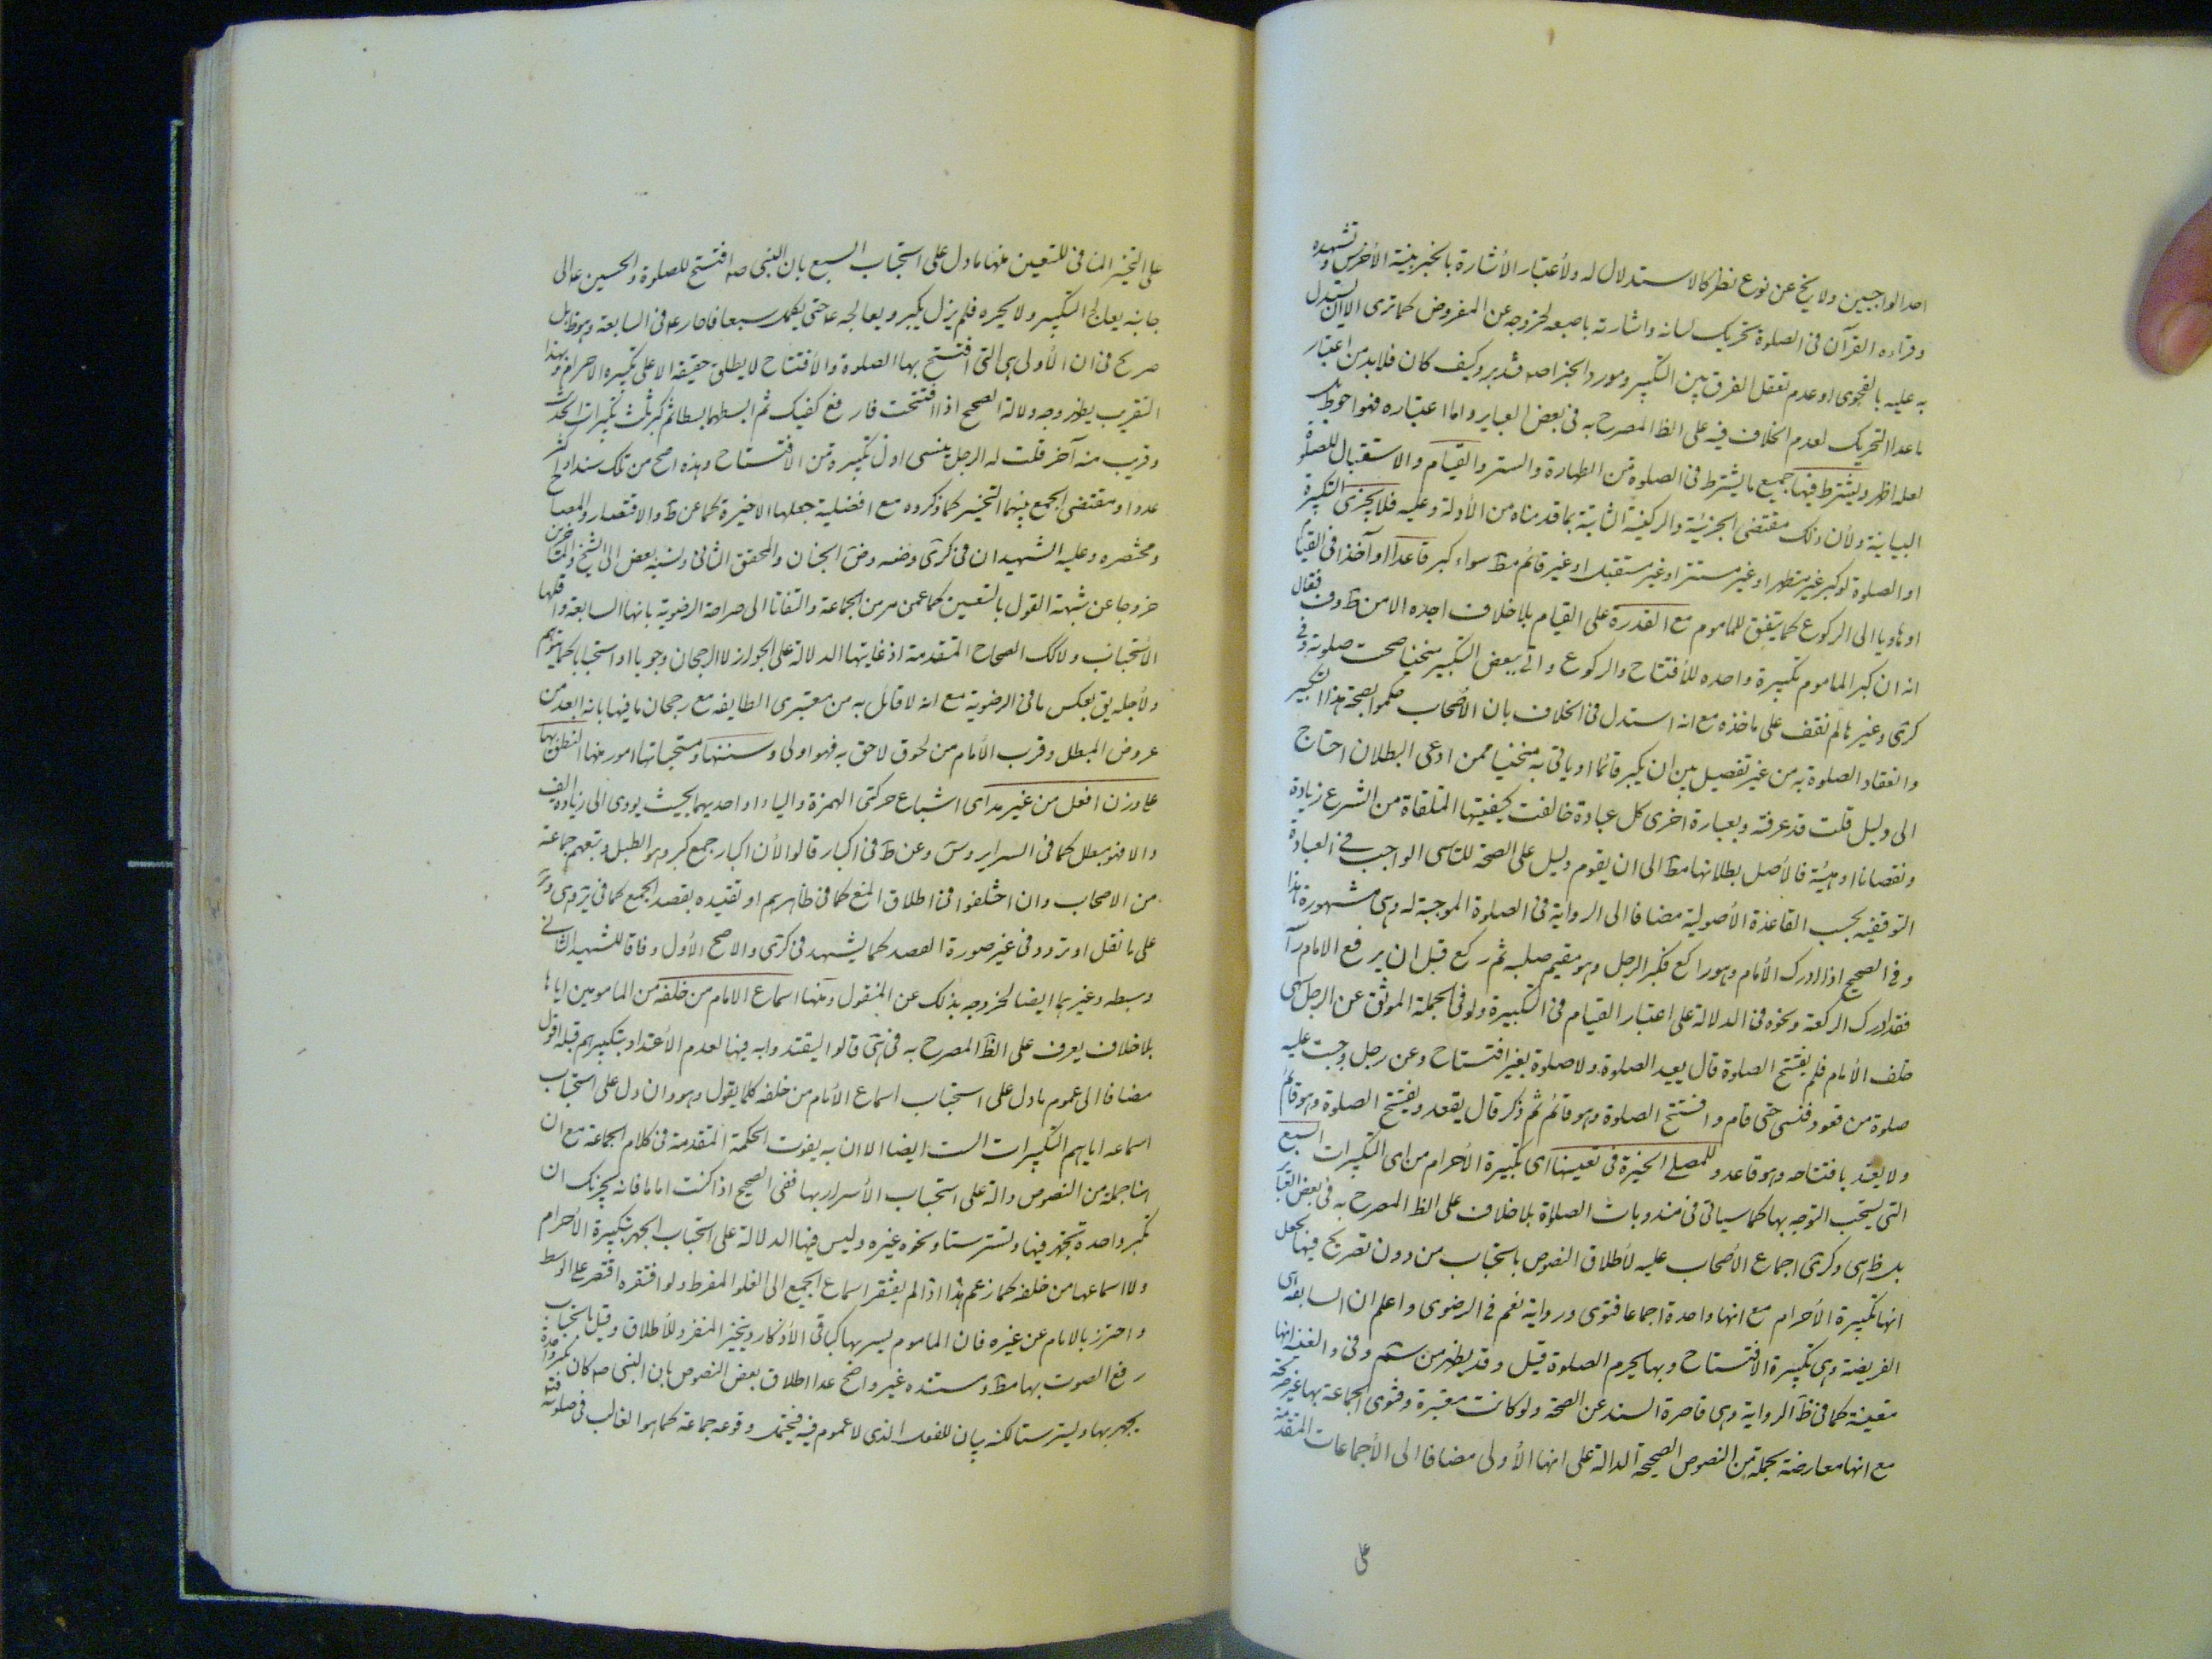 احد الواجبين ولا يخ عن نوع نظر كالاستدلال له ولأعتبار الأشارة بالخبر بنية الأخرس وتشهده
وقراءه القرآن فى الصلوة تحريك لسانه واشارته باصبعه لخروجه عن المفروض كما ترى الا ان يستدل
به عليه بالفحوى او عدم تعقل الفرق بين التكبير ومورد الخبر اصه فتدبر وكيف كان فلا بد من اعتبار
ما عدا التحريك لعدم الخلاف فيه على الظ المصرح به فى بعض العباير واما اعتباره فهو احوط بل
لعله اظهر ويشترط فيها جميع ما يشترط فى الصلوة من الطهارة والستر والقيام والاستقبال للصلوة
البيانية ولأن ذلك مقتضى الجزئية والركنية الثابتة بما قدمناه من الأدلة وعليه فلا يجزى التكبيرة
او الصلوة لو كبر غير متطهر او غير مستتر او غير مستقبل او غير قائم مط سواء كبر قاعدا او آخذا فى القيام
او هاويا الى الركوع كما يتفق للماموم مع القدرة على القيام بلا خلاف اجده الا من ط وف فقال
انه ان كبر الماموم تكبيرة واحده للأفتتاح والركوع واتى ببعض التكبير منحنيا صحت صلوته وفى
كرى وغيرها لم نقف على ماخذه مع انه استدل فى الخلاف بان الأصحاب حكموا بصحة هذا التكبير
وانعقاد الصلوة به من غير تفصيل بين ان يكبر قائما او ياتى به منحنيا فمن ادعى البطلان احتاج
الى دليل قلت قد عرفته وبعبارة اخرى كل عبادة خالفت كيفيتها المتلقاة من الشرع زيادة
ونقصانا او هيئة فالأصل بطلانها مط الى ان يقوم دليل على الصحة للتاسى الواجب فى العبادة
التوقيفيه بحسب القاعدة الأصولية مضافا الى الرواية فى الصلوة الموجبة له وهى مشهورة هذا
وفى الصحيح اذا ادرك الأمام وهو راكع فكبر الرجل وهو مقيم صلبه ثم ركع قبل ان يرفع الامام رآ
فقد ادرك الركعة ونحوه فى الدلالة على اعتبار القيام فى التكبيرة ولو فى الجملة الموثق عن الرجل سهى
خلف الأمام فلم يفتتح الصلوة قال يعيد الصلوة ولا صلوة بغير افتتاح وعن رجل وجبت عليه
صلوة من قعود فنسى حتى قام وافتتح الصلوة وهو قائم ثم ذكر قال يقعد ويفتتح الصلوة وهو قائم
ولا يعتد بافتتاحه وهو قاعد وللمصلى الخيرة فى تعيينها اى تكبيرة الأحرام من اى التكبيرات السبع
التى يستحب التوجه بها كما سياتى فى مندوبات الصلوة بلا خلاف على الظ المصرح به فى بعض العبا
بل ظ هى وكرى اجماع الأصحاب عليه لأطلاق النصوص باستحباب من دون تصريح فيها بجعل
انها تكبيرة الأحرام مع انها واحدة اجماعا فتوى ورواية نعم فى الرضوى واعلم ان السابعة هى
الفريضة وهى تكبيرة الافتتاح وبها يحرم الصلوة قيل وقد يظهر من سم وفى والغنه انها
متعينة كما فى ظ الرواية وهى قاصرة السند عن الصحة ولو كانت معتبرة وفتوى الجماعة بها غير صريحة
مع انها معارضة بجملة من النصوص الصحيحة الدالة على انها الأولى مضافا الى الأجماعات المتقدمة
على
على التخيير المنافى للتعيين منها ما دل على استحباب السبع بان النبى صه افتتح للصلوة والحسين ع الى
جانبه يعالج التكبير ولا يحره فلم يزل يكبر ويعالجه ع حتى يكمل سبعا فاحاره ع فى السابعة وهو ظ بل
صريح فى ان الأولى هى التى افتتح بها الصلوة والأفتتاح لا يطلق حقيقه الا على تكبيره الاحرام وبهذا
التقريب يظهر وجه دلالة الصحيح اذا افتتحت فارفع كفيك ثم ابسطهما بسطا ثم كبر ثلث تكبيرات الحديث
وقريب منه آخر قلت له الرجل ينسى اول تكبيرة من الافتتاح وهذه اصح من تلك سندا واكثر
عددا ومقتضى الجمع بينهما التخيير كما ذكروه مع افضلية جعلها الأخيرة كما عن ط والاقتصار والمصباح
ومختصره وعليه الشهيدان فى كرى وضه وض الجنان والمحقق الثانى ونسبه بعض الى الشيخ والمتاخرين
خروجا عن شبهة القول بالتعيين كما عمن مر من الجماعة والتفاتا الى صراحة الرضوية بانها السابعة واقلها
الأستحباب ولا كك الصحاح المتقدمة اذ غايتها الدلالة على الجواز لا الرجحان وجوبا او استحبابا كما يتوهم
ولأجله يق بعكس ما فى الرضوية مع انه لا قائل به من معتبرى الطايفه مع رجحان ما فيها بانه ابعد من
عروض المبطل وقرب الأمام من لحوق لاحق به فهو اولى وسننها ومستحباتها امور منها النطق بها
على وزن افعل من غير مد اى اشباع حركتى الهمزة والباء او احديهما بحيث يودى الى زيادة الف
والا فهو مبطل كما فى السراير وس وعن ط فى اكبار قالوا لأن اكبار جمع كبر وهو الطبل وتبعهم جماعة
من الاصحاب وان اختلفوا فى اطلاق المنع كما فى ظاهرهم او تقييده بقصد الجمع كما فى
على ما نقل او تردد فى غير صورة القصد كما يشهد فى كرى والاصح الأول وفاقا للشهيد الثانى
وسبطه وغيرهما ايضا لخروجه بذلك عن المنقول ومنها اسماع الامام من خلفه من المامومين اياها
بلا خلاف يعرف على الظ المصرح به فى هى قالوا ليقتدوا به فيها لعدم الأعتداد بتكبيرهم قبله اقول
مضافا الى عموم ما دل على استحباب اسماع الأمام من خلفه كلما يقول وهو وان دل على استحباب
اسماعه اياهم التكبيرات الست ايضا الا ان به يفوت الحكمة المتقدمة فى كلام الجماعة مع ان
هنا جملة من النصوص دالة على استحباب الأسرار بها ففى الصحيح اذا كنت اماما فانه يجزئك ان
تكبر واحدة تجهر فيها وتستر ستا ونحوه غيره وليس فيها الدلالة على استحباب الجهر بتكبيرة الأحرام
ولا اسماعها من خلفه كما زعم هذا اذا لم يفتقر اسماع الجميع الى العلو المفرط ولو افتقره اقتصر على الوسط
واحترز بالامام عن غيره فان الماموم يسر بها كباقى الأذكار ويتخير المنفرد للأطلاق وقيل باستحباب
رفع الصوت بها مط ومستنده غير واضح عدا اطلاق بعض النصوص بان النبى صه كان يكبر واحدة
يجهر بها ويسر ستا لكنه بيان للفعل الذى لا عموم فيه فيحتمل وقوعه جماعة كما هو الغالب فى صلوته